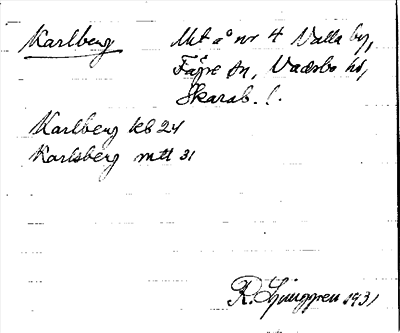 Karlberg
Mt å nr 4 Valla by,
Fägre sn, Vadsbo hd,
Skarab. l.
Karlberg kb 24
Karlsberg mtt 31
R. Ljunggren 1931